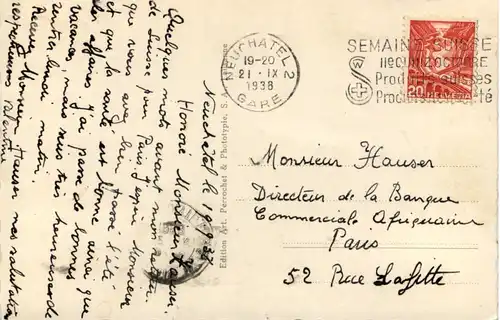 Neuchâtel le 19.9.38
Honoré Monsieur Hauser.
Quelques mots avant mon retour
de Suisse pour Paris. J'espère
que vous avez bien passé l'été
et que la santé est bonne ainsi que
les affaires, j'ai passé de bonnes
vacances, mais suis très heureuse de
rentrer lundi matin.
Recevez Monsieur Hauser mes salutations
respectueuses Valentine
Edition Art. Perrochet & Phototypie, S. A.
NEUCHATEL 2
19-20
21·IX
1938
GARE
SEMAINE SUISSE
OCTOBRE
Produits suisses
20
HELVETIA
Monsieur Hauser
Directeur de la Banque
Commerciale Africaine
Paris
52 Rue Lafitte